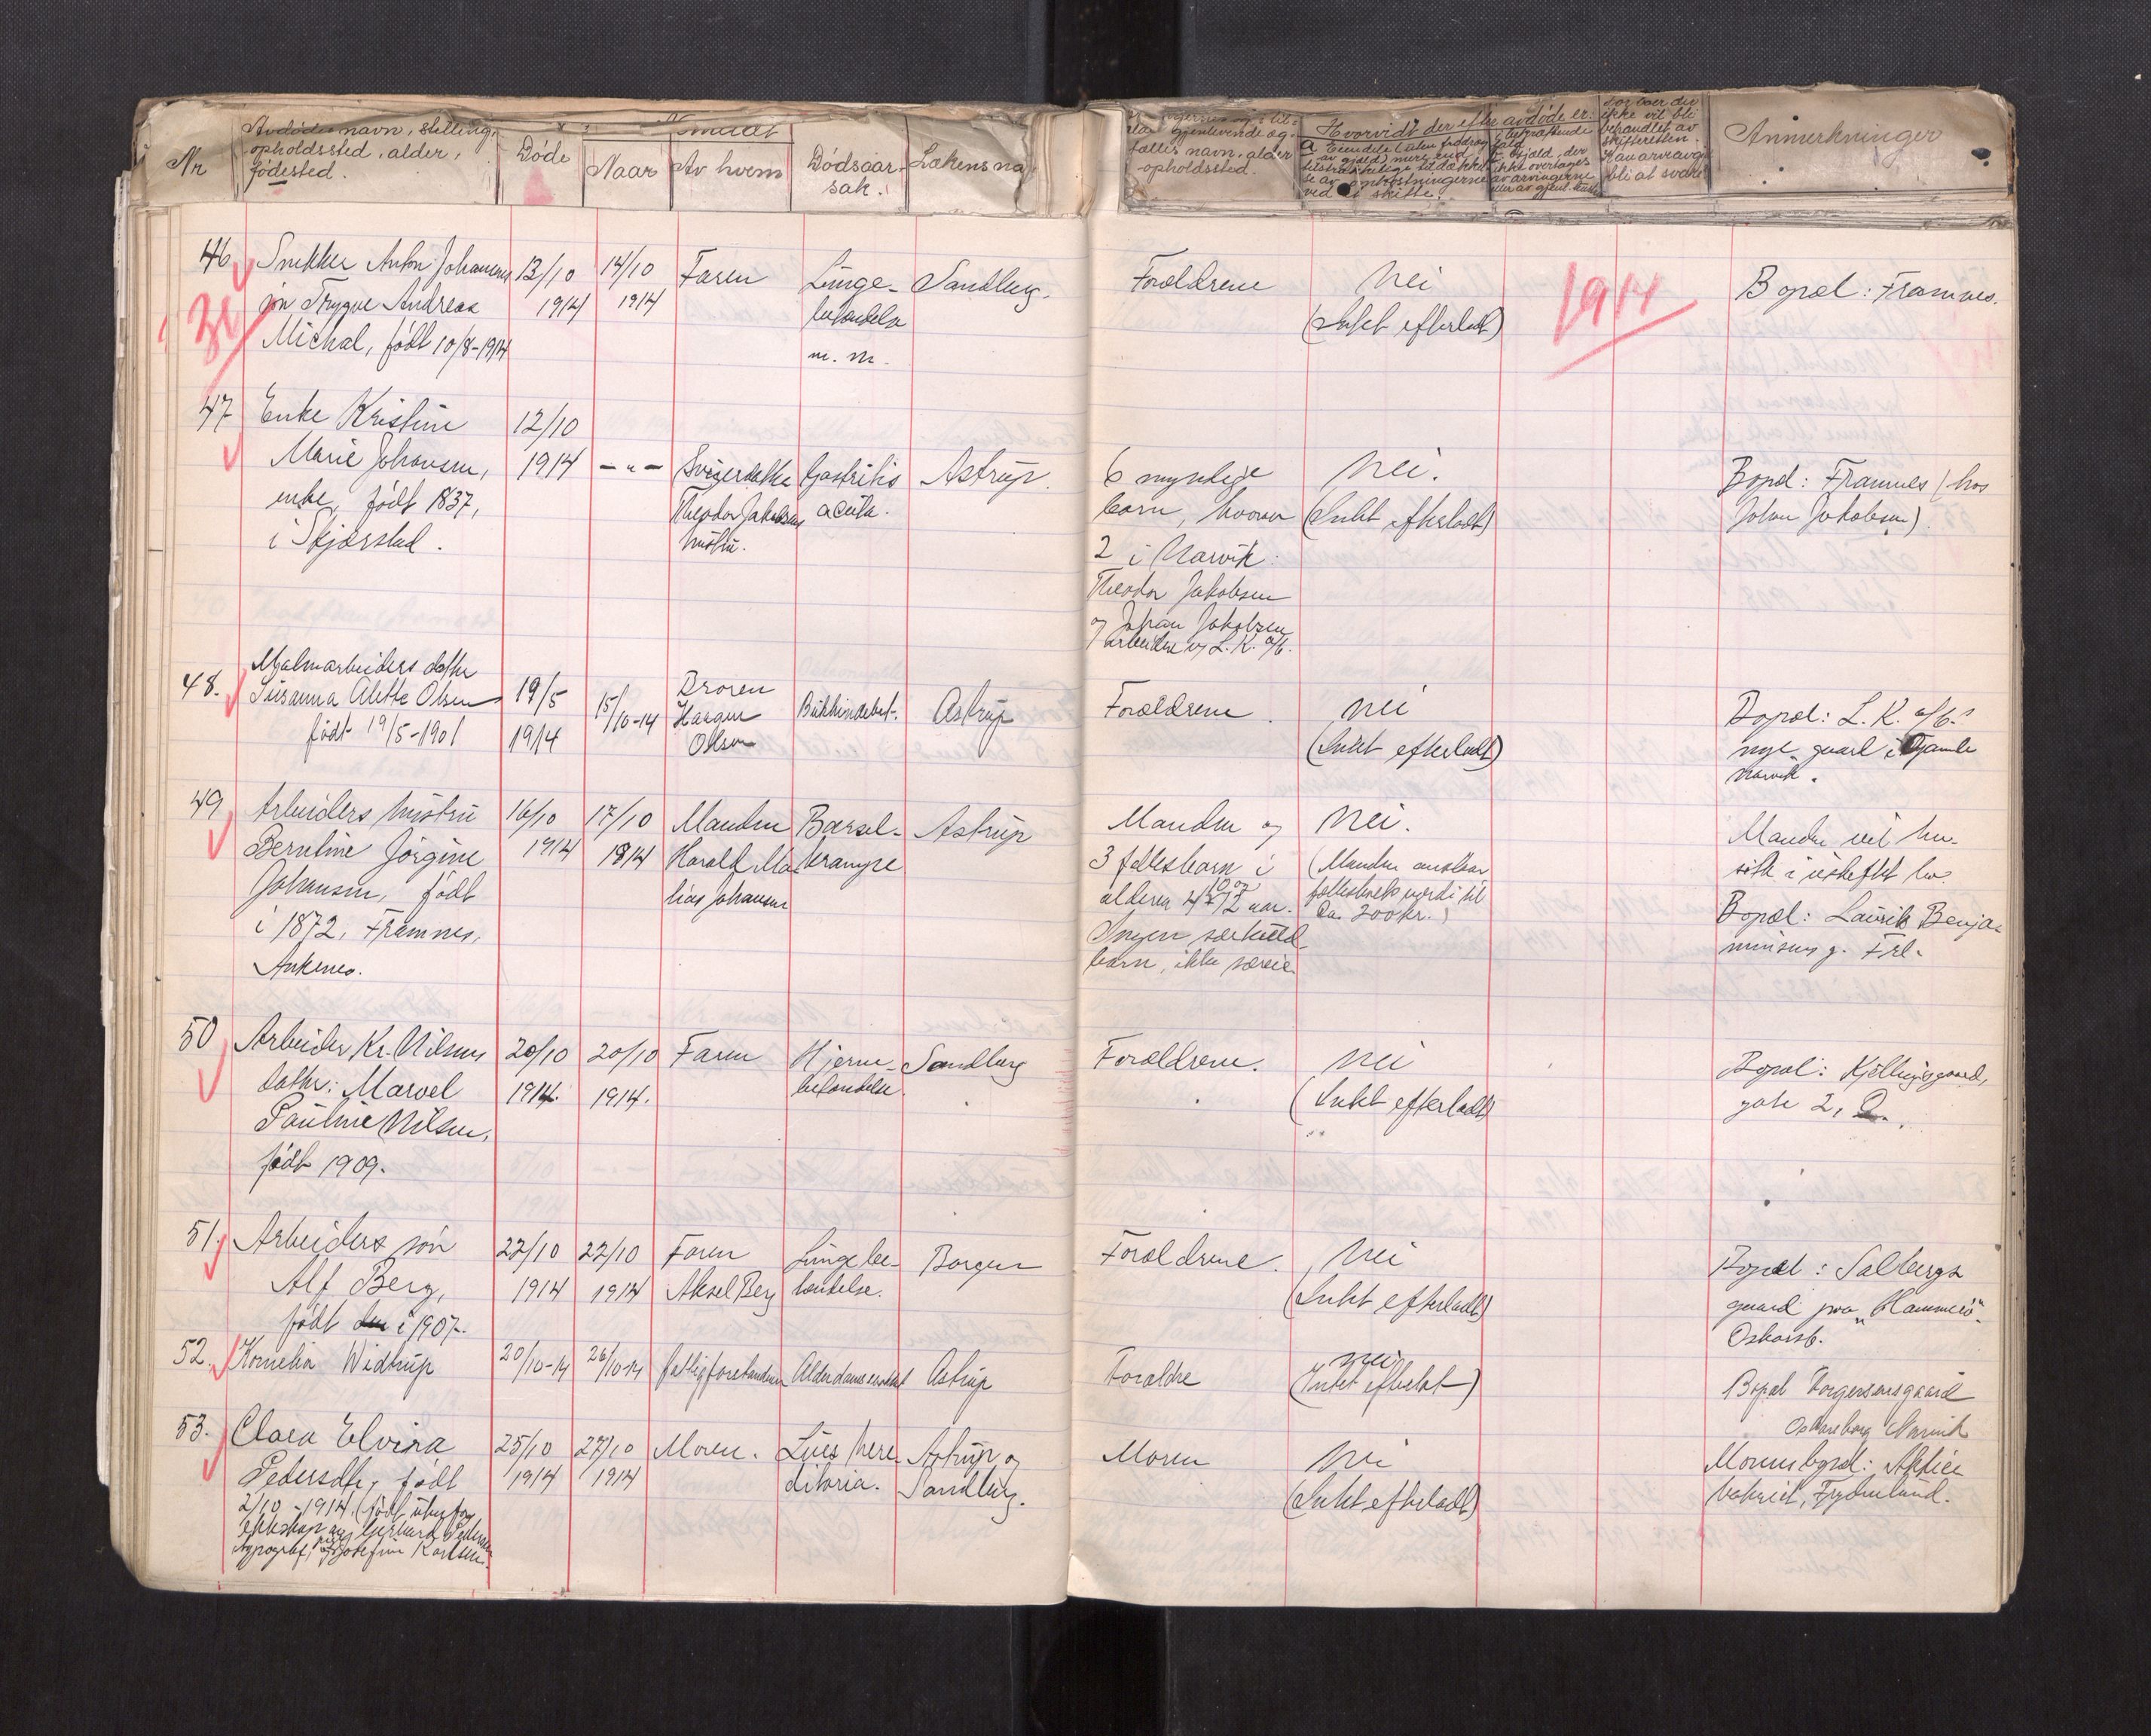 Nr
Avdødes navn, stilling,
opholdssted, alder,
fødested.
Døde
Naar
Av hvem
Dødsaar-
sak.
Lækens na
fælles navn, alder
opholdssted.
Hvorvidt der efter avdøde er:
ved et skifte.
ikke vil bli
behandlet av
skifteretten.
Anmerkninger
46
Snekker Anton Johansens
søn Trygve Andreas
Michal, født 10/8-1914
13/10
1914
14/10
1914
Faren
Lunge-
betændelse
m. m.
Sandberg.
Forældrene
Nei
(Intet efterladt)
1914
Bopæl: Framnes.
47
Enke Kristine
Marie Johansen,
enke, født 1837,
i Skjærstad.
12/10
1914
- " -
Svigerdatter
Theodor Jakobsens
hustru.
Gastritis
acuta.
Astrup.
6 myndige
barn, hvorav
2 i Narvik:
Theodor Jakobsen
og Johan Jakobsen
arbeidere v/ L. K. a/b.
Nei.
(Intet efterladt)
Bopæl: Framnes (hos
Johan Jakobsen).
48.
Malmarbeiders datter
Susanna Alette Olsen
født 19/5-1901
19/5
1914
15/10-14
Broren
Haagen
Olsen
Astrup
Forældrene.
Nei
(Intet efterladt)
Bopæl: L. K. a/b.s
nye gaard i Gamle
Narvik.
49
Arbeiders hustru
Berntine Jørgine
Johansen, født
i 1872, Framnes,
Ankenes.
16/10
1914
17/10
1914
Manden
Harald Ma-
lius Johansen
Barsel-
krampe
Astrup
Manden og
3 fællesbarn i
alderen 4, 10 og 12 aar.
Ingen særkuld-
barn, ikke særeie.
Nei.
(Manden anslaar
fællesboets værdi til
ca. 200 kr.)
Manden vil hen-
sitte i uskiftet bo.
Bopæl: Laurits Benja-
minsens g. Frl.
50
Arbeider Kr. Nilsens
datter: Marvel
Pauline Nilsen,
født 1909.
20/10
1914.
20/10
1914.
Faren
Hjerne-
betændelse.
Sandberg
Forældrene.
Nei
(Intet efterladt)
Bopæl: Kjellingsgaard,
gate 2, O.
51.
Arbeiders søn
Alf Berg,
født i 1907.
22/10
1914
22/10
1914
Faren
Aksel Berg
Lungebe-
tændelse.
Borgen
Forældrene.
Nei
(Intet efterladt)
Bopæl: Salbergs
gaard paa "Hammerö"
Oskarsb.
52.
Kornelia Widtrup
20/10-14
26/10-14
fattigforstanderen
Astrup
Forældre
nei
(Intet efterlat)
Bopæl Torgersensgaard
Oskarsborg Narvik
53.
Clara Elvira
Pedersdtr, født
2/10-1914. (født utenfor
ekteskap av Gerhard Pedersen
typograf, og Josefine Karlsen.
25/10
1914
27/10
1914
Moren.
Lues here-
ditaria.
Astrup og
Sandberg.
Moren
Nei
(Intet efterladt)
Morens bopæl: Aktie-
bakeriet, Frydenlund.